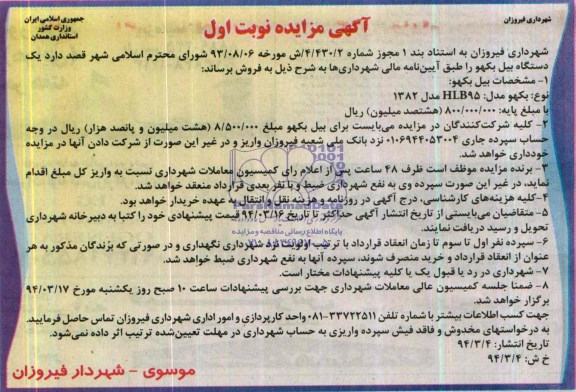 شهرداری فیروزان
جمهوری اسلامی ایران
وزارت کشور
استانداری همدان
آگهی مزایده نوبت اول
شهرداری فیروزان به استناد بند ۱ مجوز شماره ۴/۴۳۰/۲/ش مورخه ۹۳/۰۸/۰۶ شورای محترم اسلامی شهر قصد دارد یک
دستگاه بیل بکهو را طبق آیین‌نامه مالی شهرداری‌ها به شرح ذیل به فروش برساند:
۱- مشخصات بیل بکهو:
نوع: بکهو مدل: HLB۹۵ مدل ۱۳۸۲
با مبلغ پایه: ۸۰۰/۰۰۰/۰۰۰ (هشتصد میلیون) ریال
۲- کلیه شرکت‌کنندگان در مزایده می‌بایست برای بیل بکهو مبلغ ۸/۵۰۰/۰۰۰ (هشت میلیون و پانصد هزار) ریال در وجه
حساب سپرده جاری ۰۱۰۶۹۴۴۰۵۳۰۰۴ نزد بانک ملی شعبه فیروزان واریز و در غیر این صورت از شرکت دادن آنها در مزایده
خودداری خواهد شد.
۳- برنده مزایده موظف است ظرف ۴۸ ساعت پس از اعلام رای کمیسیون معاملات شهرداری نسبت به واریز کل مبلغ اقدام
نماید، در غیر این صورت سپرده وی به نفع شهرداری ضبط و با نفر بعدی قرارداد منعقد خواهد شد.
۴- کلیه هزینه‌های کارشناسی، درج آگهی در روزنامه و هزینه نقل و انتقال به عهده خریدار خواهد بود.
۵- متقاضیان می‌بایستی از تاریخ انتشار آگهی حداکثر تا تاریخ ۹۴/۰۳/۱۶ قیمت پیشنهادی خود را کتبا به دبیرخانه شهرداری
تحویل و رسید دریافت نمایند.
۶- سپرده نفر اول تا سوم تا زمان انعقاد قرارداد با ترتیب اولویت نزد شهرداری نگهداری و در صورتی که برندگان مذکور به هر
عنوان از انعقاد قرارداد و خرید منصرف شوند، سپرده آنها به نفع شهرداری ضبط خواهد شد.
۷- شهرداری در رد یا قبول یک یا کلیه پیشنهادات مختار است.
۸- ضمنا جلسه کمیسیون عالی معاملات شهرداری جهت بررسی پیشنهادات ساعت ۱۰ صبح روز یکشنبه مورخ ۹۴/۰۳/۱۷
برگزار خواهد شد.
جهت کسب اطلاعات بیشتر با شماره تلفن ۳۳۷۲۲۵۱۱-۰۸۱ واحد کارپردازی و امور اداری شهرداری فیروزان تماس حاصل فرمایید.
به درخواستهای مخدوش و فاقد فیش سپرده واریزی به حساب شهرداری در مهلت تعیین‌شده ترتیب اثر داده نمی‌شود.
تاریخ انتشار: ۹۴/۳/۴
خ ش: ۹۴/۳/۴
موسوی - شهردار فیروزان
پایگاه اطلاع رسانی مناقصه و مزایده